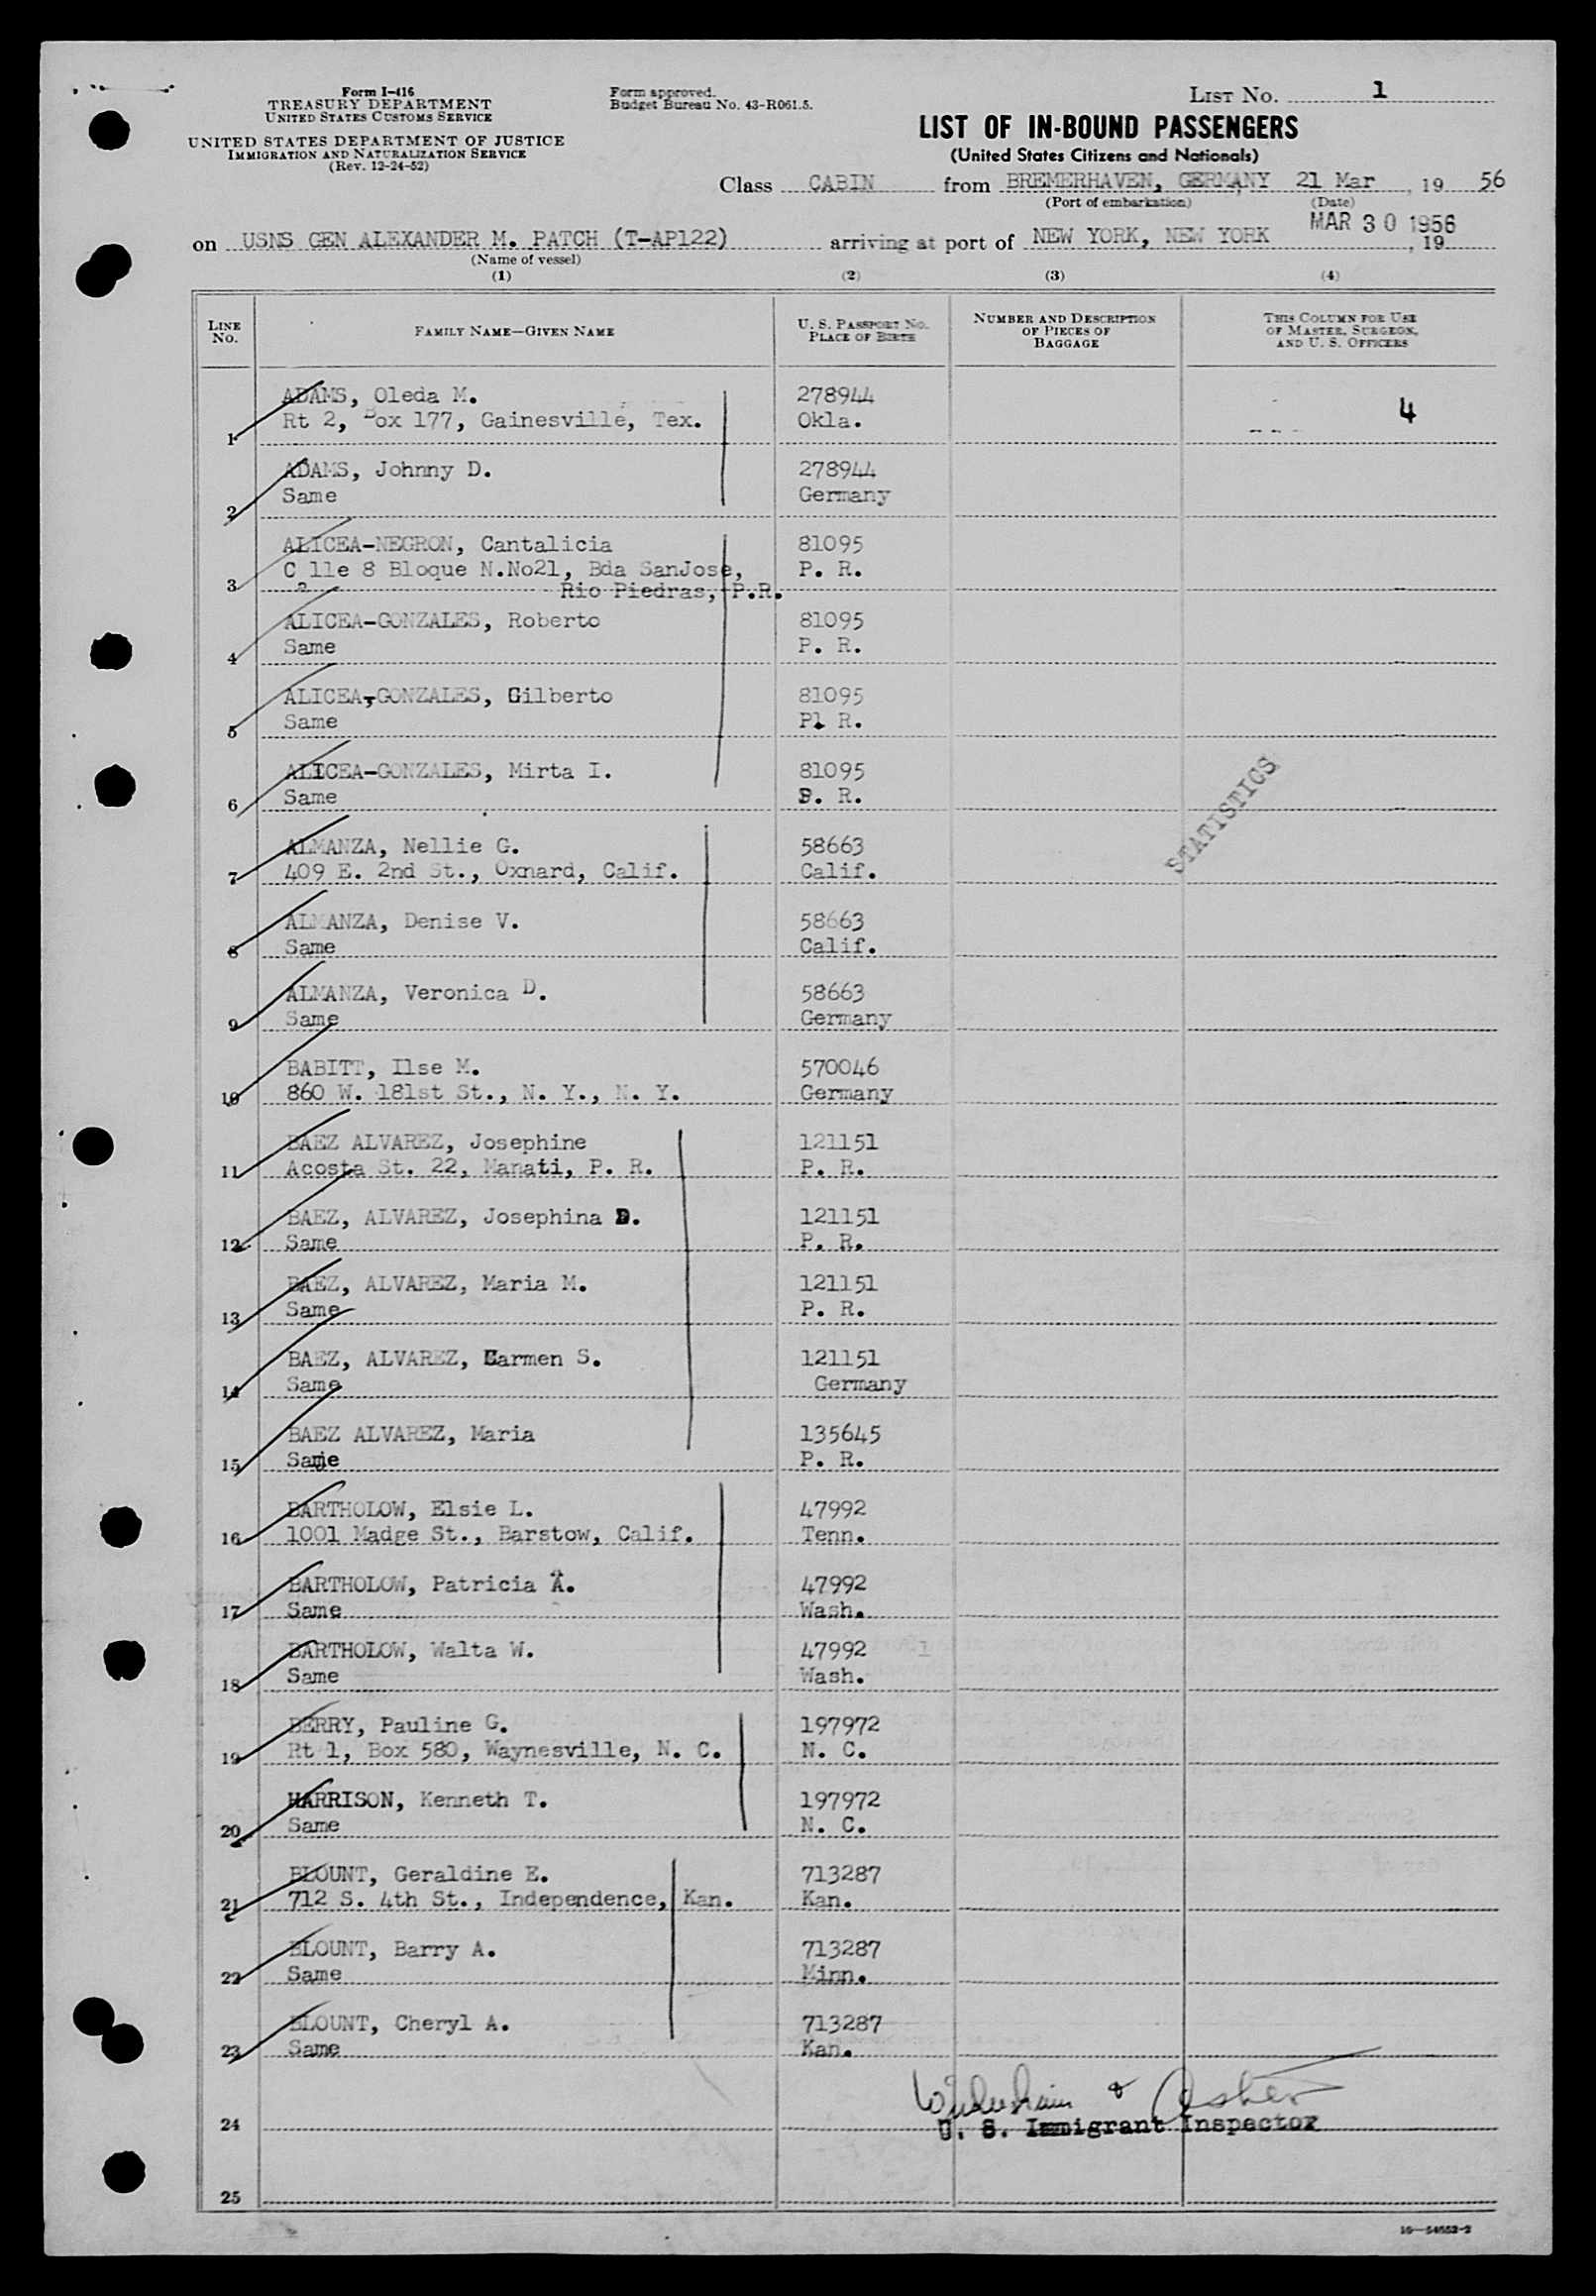 Form I-416
TREASURY DEPARTMENT
UNITED STATES CUSTOMS SERVICE
UNITED STATES DEPARTMENT OF JUSTICE
IMMIGRATION AND NATURALIZATION SERVICE
(Rev. 12-24-52)
Form approved.
Budget Bureau No. 43-R061.5.
LIST NO. 1
LIST OF IN-BOUND PASSENGERS
(United States Citizens and Nationals)
Class CABIN from BREMERHAVEN, GERMANY 21 Mar, 19 56
(Port of embarkation) (Date)
on USNS GEN ALEXANDER M. PATCH (T-AP122) arriving at port of NEW YORK, NEW YORK MAR 30 1956, 19
(Name of vessel)
(1) (2) (3) (4)
LINE NO. FAMILY NAME—GIVEN NAME U. S. PASSPORT NO. PLACE OF BIRTH NUMBER AND DESCRIPTION OF PIECES OF BAGGAGE THIS COLUMN FOR USE OF MASTER, SURGEON, AND U. S. OFFICERS
ADAMS, Oleda M. 278944
1 Rt 2, Box 177, Gainesville, Tex. Okla. 4
ADAMS, Johnny D. 278944
2 Same Germany
ALICEA-NEGRON, Cantalicia 81095
3 C lle 8 Bloque N.No21, Bda SanJose, P. R.
a Rio Piedras, P.R.
ALICEA-GONZALES, Roberto 81095
4 Same P. R.
ALICEA-GONZALES, Gilberto 81095
5 Same Pl R.
ALICEA-GONZALES, Mirta I. 81095
6 Same P. R.
STATISTICS
ALMANZA, Nellie G. 58663
7 409 E. 2nd St., Oxnard, Calif. Calif.
ALMANZA, Denise V. 58663
8 Same Calif.
ALMANZA, Veronica D. 58663
9 Same Germany
BABITT, Ilse M. 570046
10 860 W. 181st St., N. Y., N. Y. Germany
BAEZ ALVAREZ, Josephine 121151
11 Acosta St. 22, Manati, P. R. P. R.
BAEZ, ALVAREZ, Josephina D. 121151
12 Same P. R.
BAEZ, ALVAREZ, Maria M. 121151
13 Same P. R.
BAEZ, ALVAREZ, Carmen S. 121151
14 Same Germany
BAEZ ALVAREZ, Maria 135645
15 Same P. R.
BARTHOLOW, Elsie L. 47992
16 1001 Madge St., Barstow, Calif. Tenn.
BARTHOLOW, Patricia A. 47992
17 Same Wash.
BARTHOLOW, Walta W. 47992 1
18 Same Wash.
BERRY, Pauline G. 197972
19 Rt 1, Box 580, Waynesville, N. C. N. C.
HARRISON, Kenneth T. 197972
20 Same N. C.
BLOUNT, Geraldine E. 713287
21 712 S. 4th St., Independence, Kan. Kan.
BLOUNT, Barry A. 713287
22 Same Minn.
BLOUNT, Cheryl A. 713287
23 Same Kan.
&
24 U. S. Immigrant Inspector
25